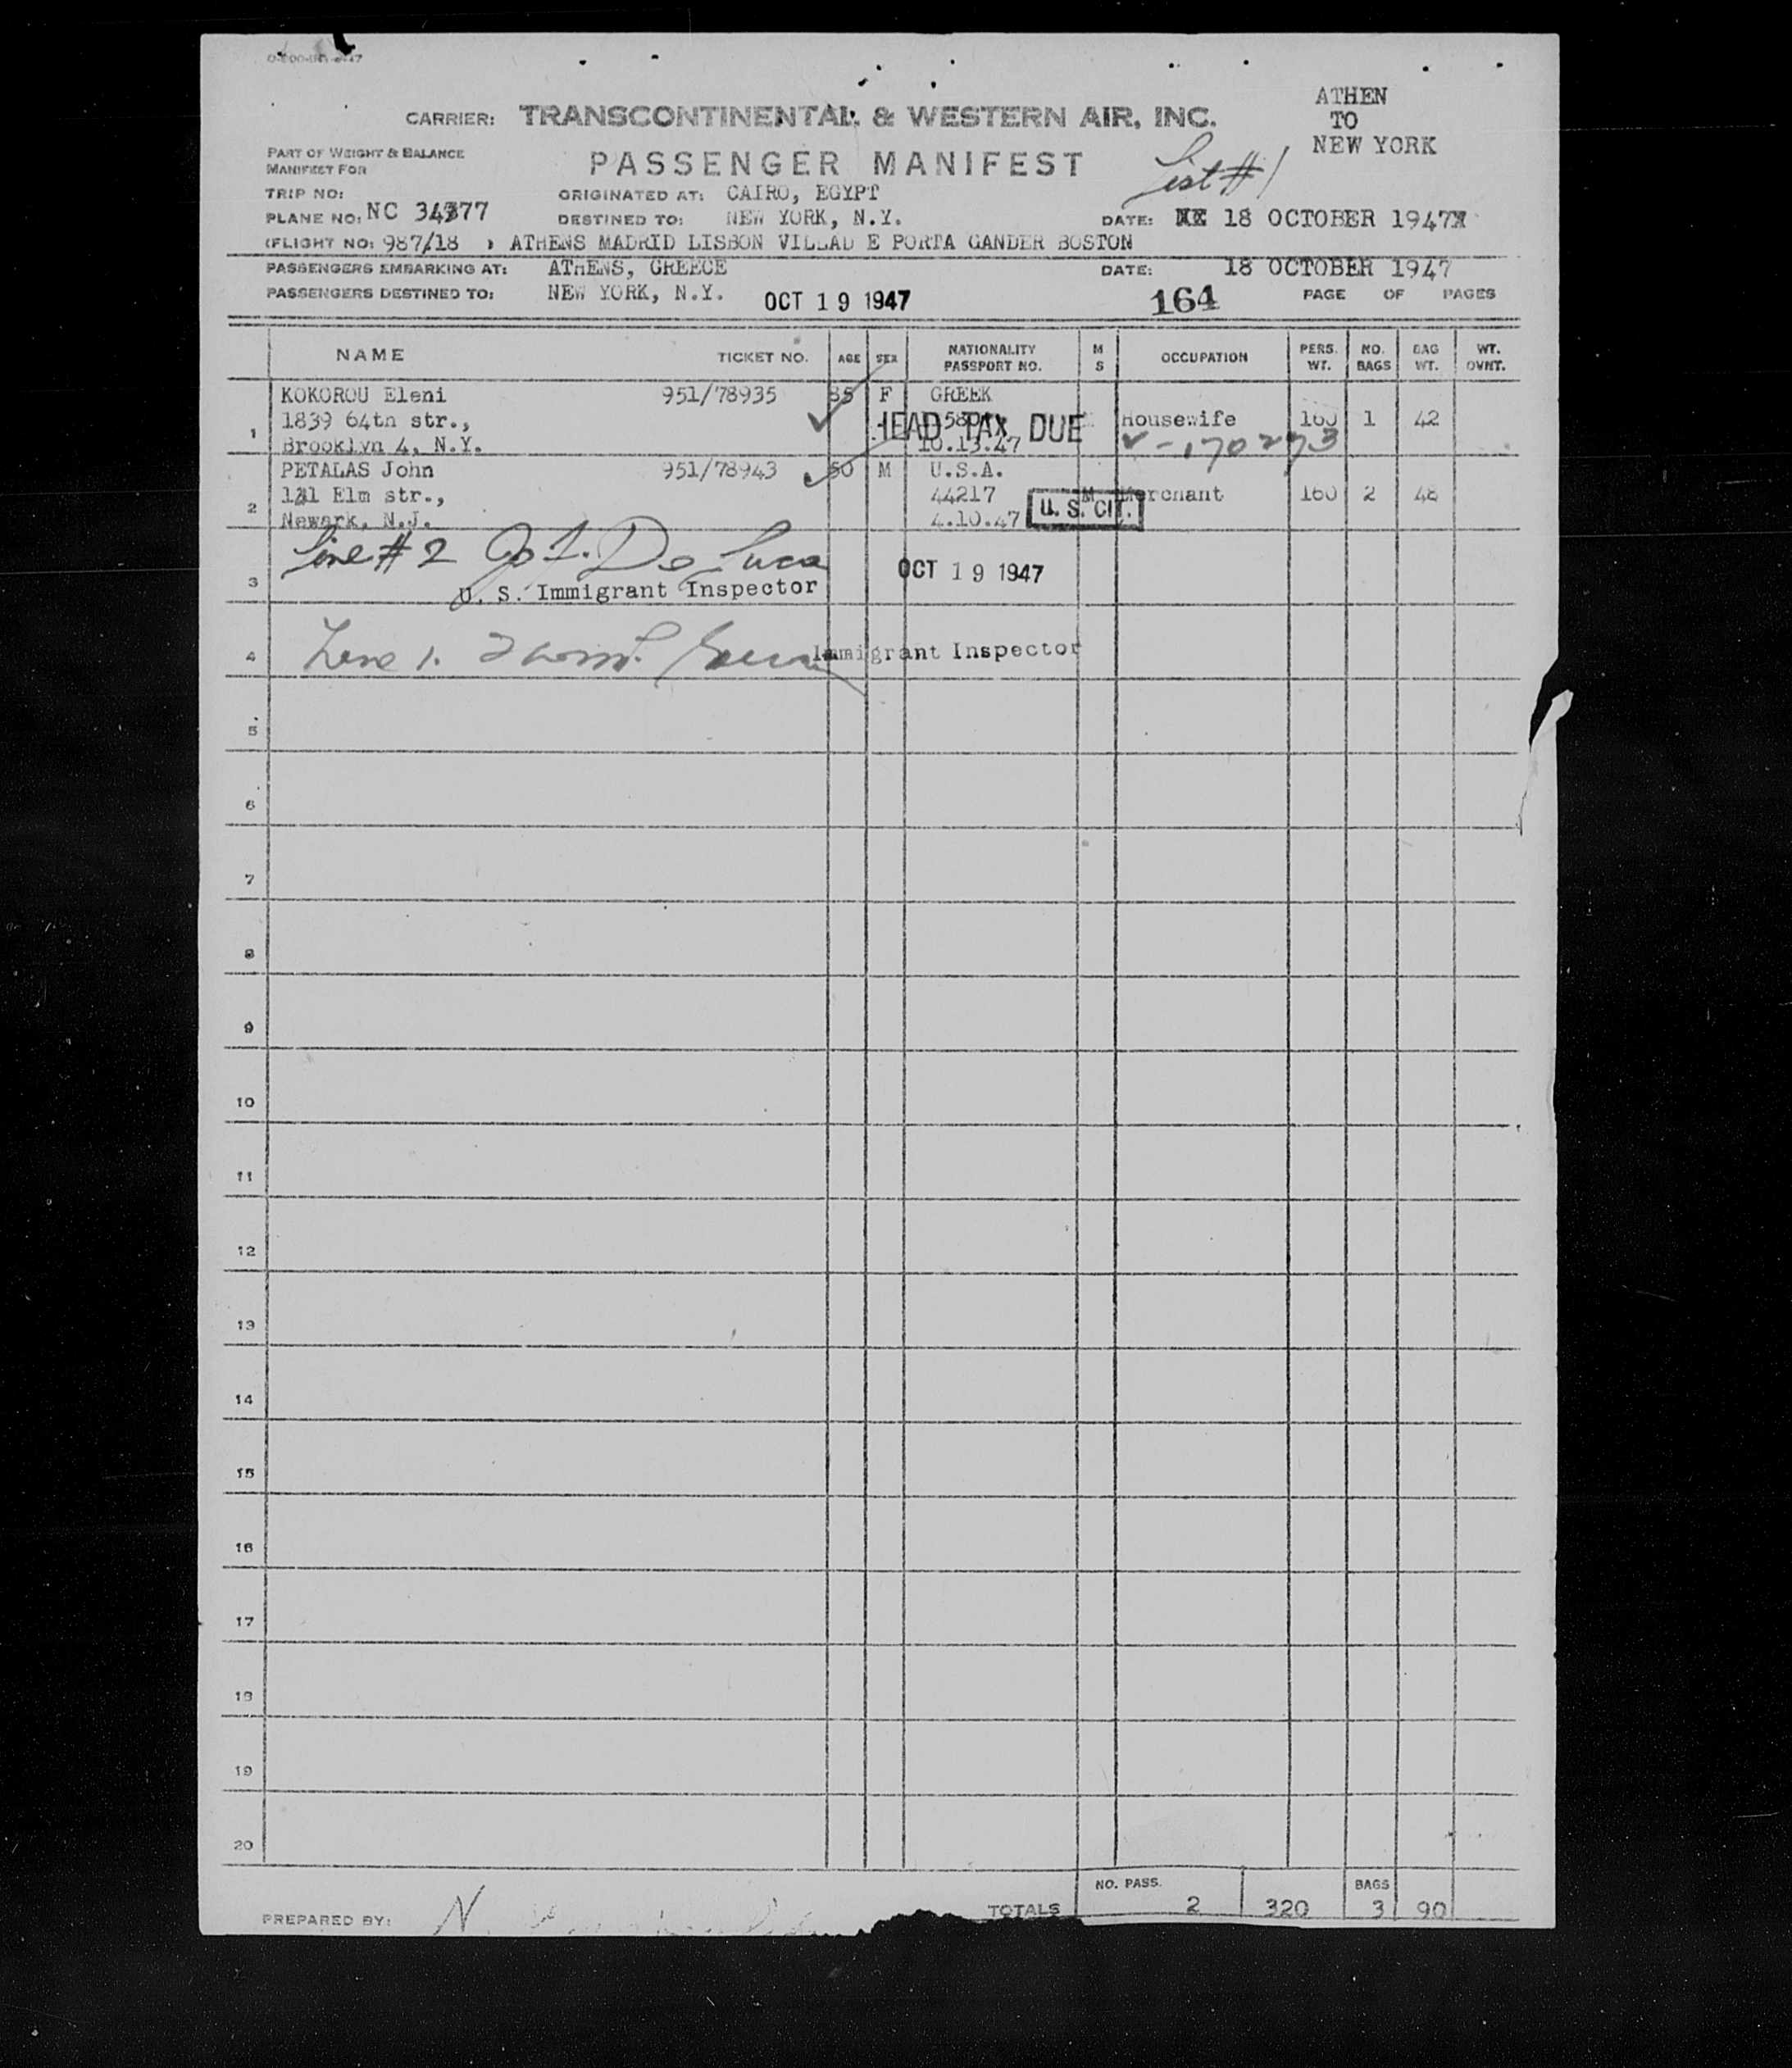 ATHEN
TO
NEW YORK
CARRIER: TRANSCONTINENTAL & WESTERN AIR, INC.
PART OF WEIGHT & BALANCE
MANIFEST FOR
PASSENGER MANIFEST
List #1
TRIP NO:
ORIGINATED AT: CAIRO, EGYPT
PLANE NO: NC 34577
DESTINED TO: NEW YORK, N.Y.
DATE: 18 OCTOBER 1947
(FLIGHT NO: 987/18 ) ATHENS MADRID LISBON VILLAD E PORTA GANDER BOSTON
PASSENGERS EMBARKING AT: ATHENS, GREECE DATE: 18 OCTOBER 1947
PASSENGERS DESTINED TO: NEW YORK, N.Y. OCT 19 1947 164 PAGE OF PAGES
NAME TICKET NO. AGE SEX NATIONALITY PASSPORT NO. M S OCCUPATION PERS. WT. NO. BAGS BAG WT. WT. OVHT.
KOKOROU Eleni 951/78935 85 F GREEK
1839 64th str., HEAD TAX DUE Housewife 160 1 42
1 Brooklyn 4, N.Y. 10.13.47 V-170273
PETALAS John 951/78943 50 M U.S.A.
121 Elm str., 44217 M Merchant 160 2 48
2 Newark, N.J. 4.10.47 U.S. CIT.
Line #2 De Luca
3 U. S. Immigrant Inspector OCT 19 1947
4 Line 1. Immigrant Inspector
5
6
7
8
9
10
11
12
13
14
15
16
17
18
19
20
PREPARED BY: N. TOTALS NO. PASS. 2 320 BAGS 3 90